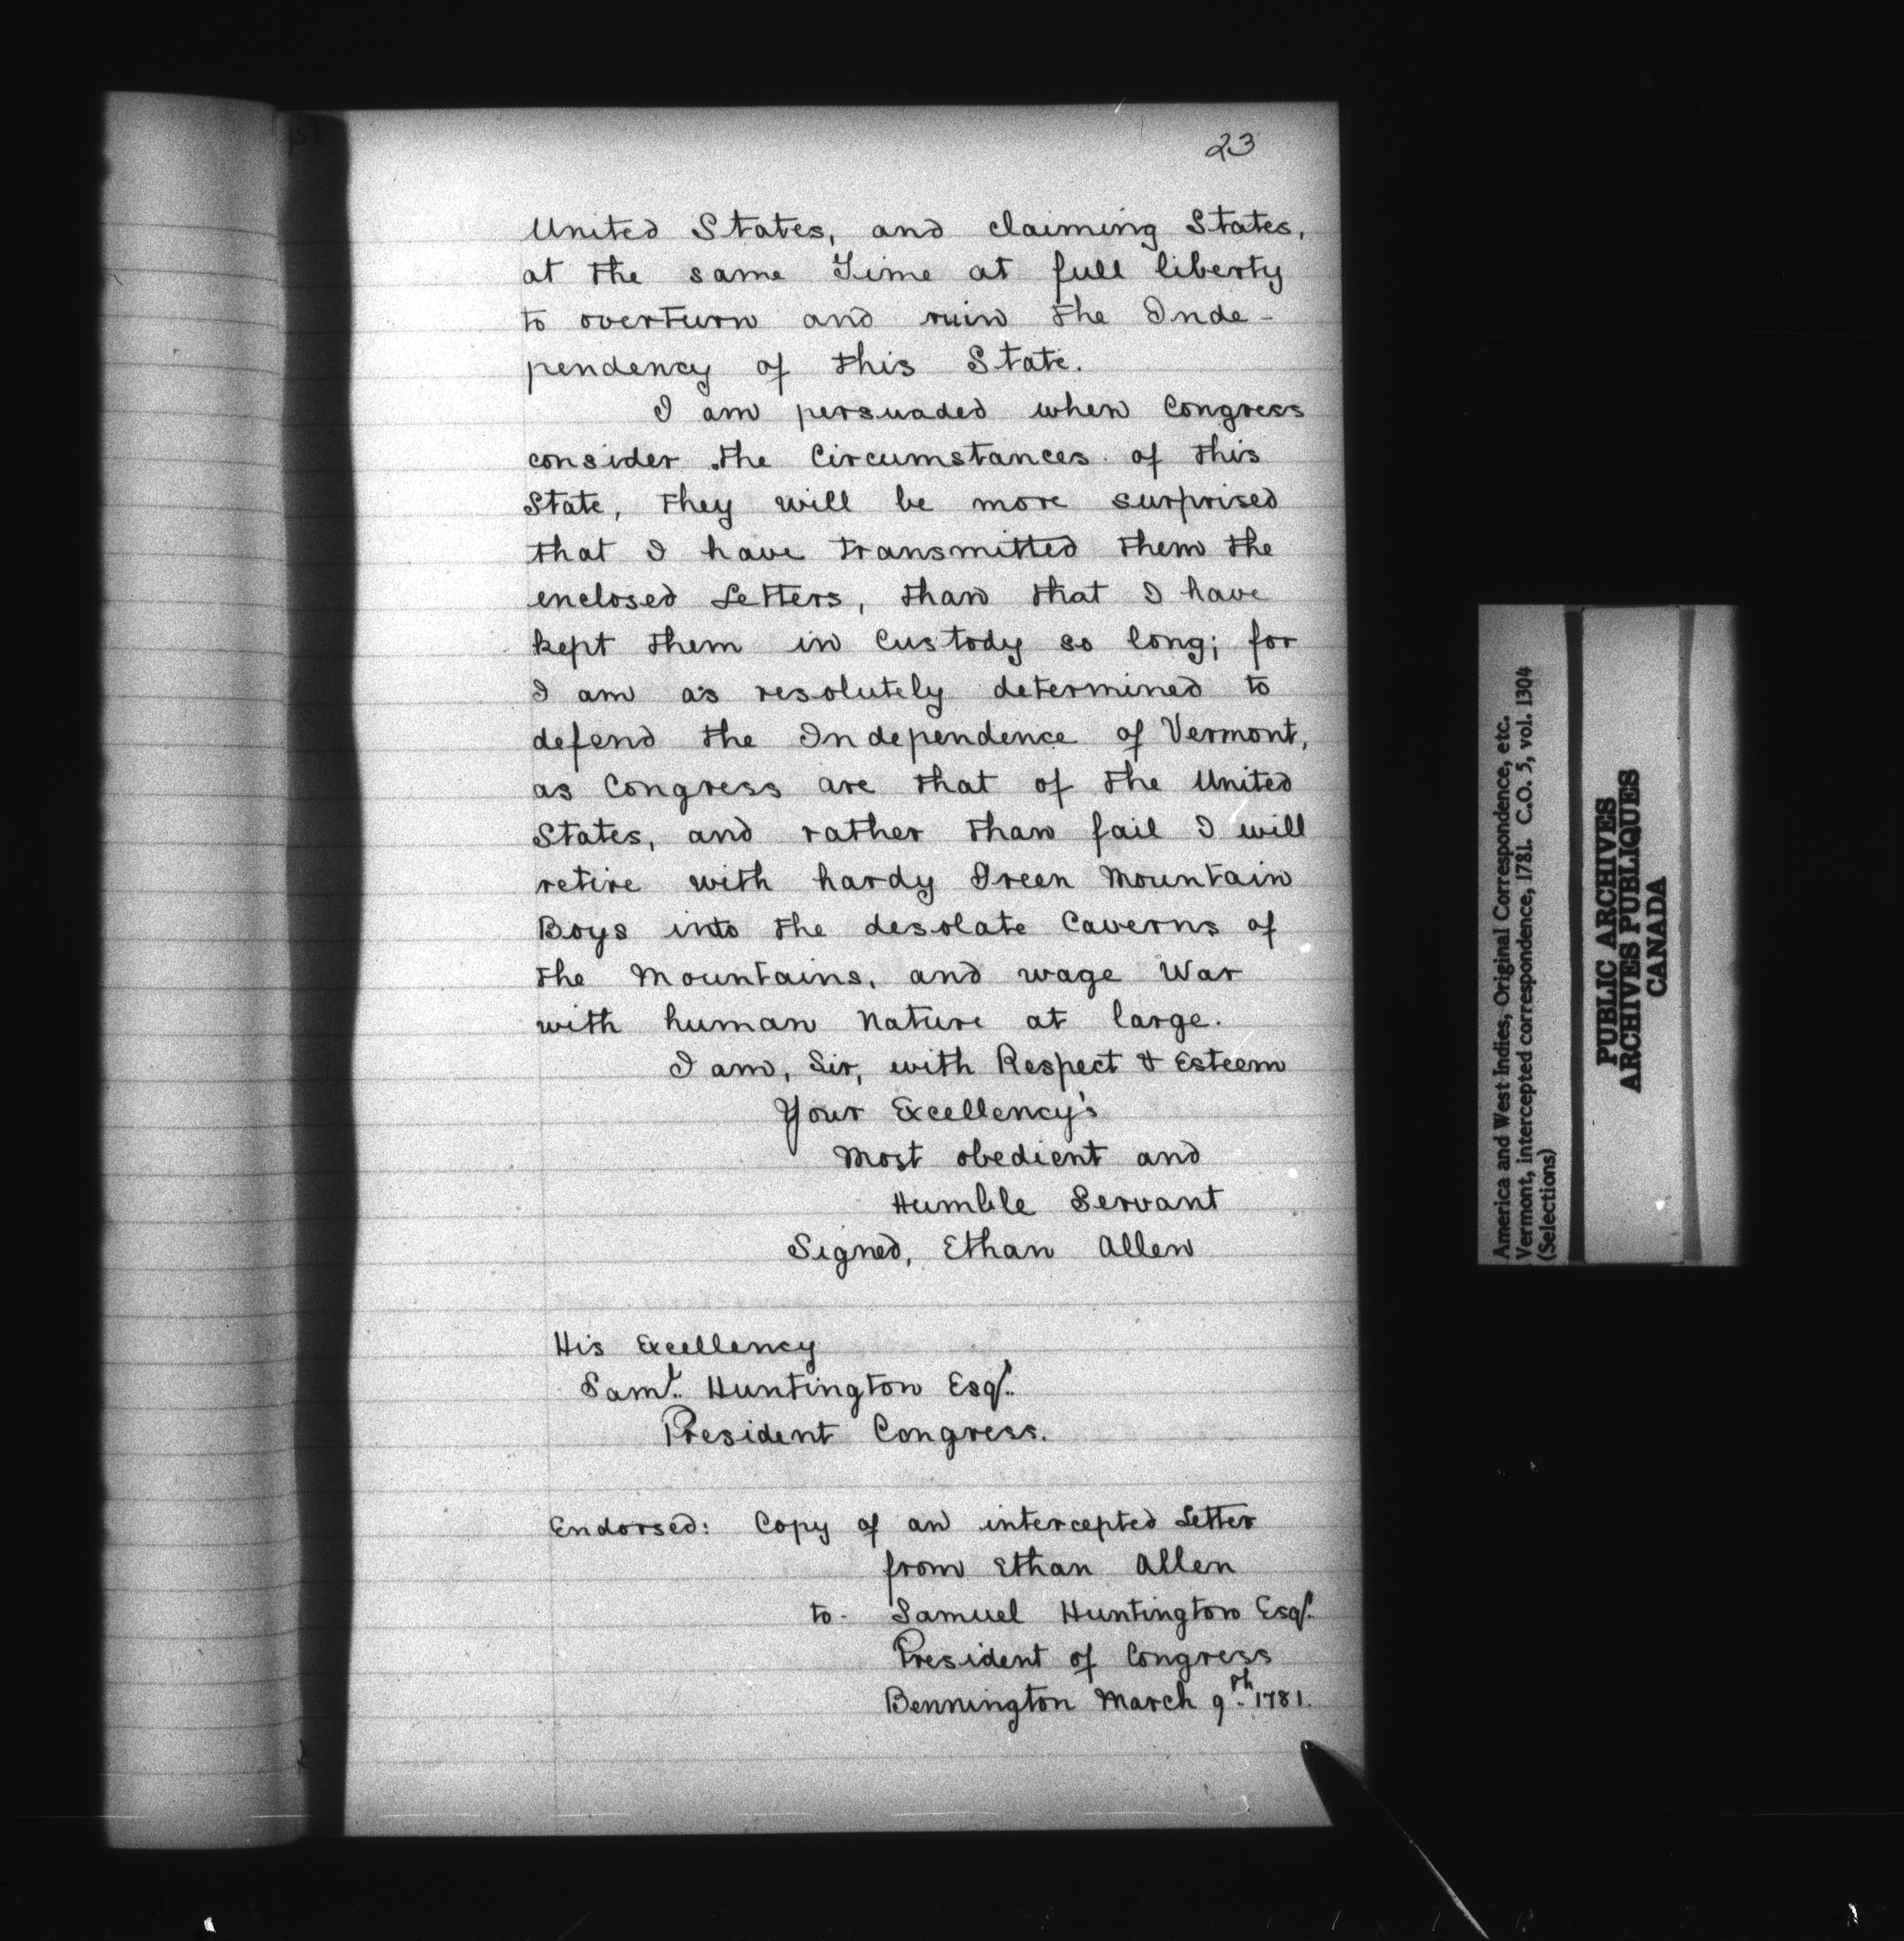 23
United States, and claiming States,
at the same Time at full liberty
to overturn and ruin the Inde-
pendency of this State.
I am persuaded when Congress
consider the Circumstances of this
State, they will be more surprised
that I have transmitted them the
enclosed Letters, than that I have
kept them in Custody so long; for
I am as resolutely determined to
defend the Independence of Vermont,
as Congress are that of the United
States, and rather than fail I will
retire with hardy Green Mountain
Boys into the desolate Caverns of
the Mountains, and wage War
with human Nature at large.
I am, Sir, with Respect & Esteem
Your Excellency's
Most obedient and
Humble Servant
Signed, Ethan Allen
His Excellency
Saml. Huntington Esqr.
President Congress.
Endorsed: Copy of an intercepted Letter
from Ethan Allen
to - Samuel Huntington Esqr.
President of Congress
Bennington March 9th. 1781.
America and West Indies, Original Correspondence, etc.
Vermont, intercepted correspondence, 1781. C.O. 5, vol. 1304
(Selections)
PUBLIC ARCHIVES
ARCHIVES PUBLIQUES
CANADA